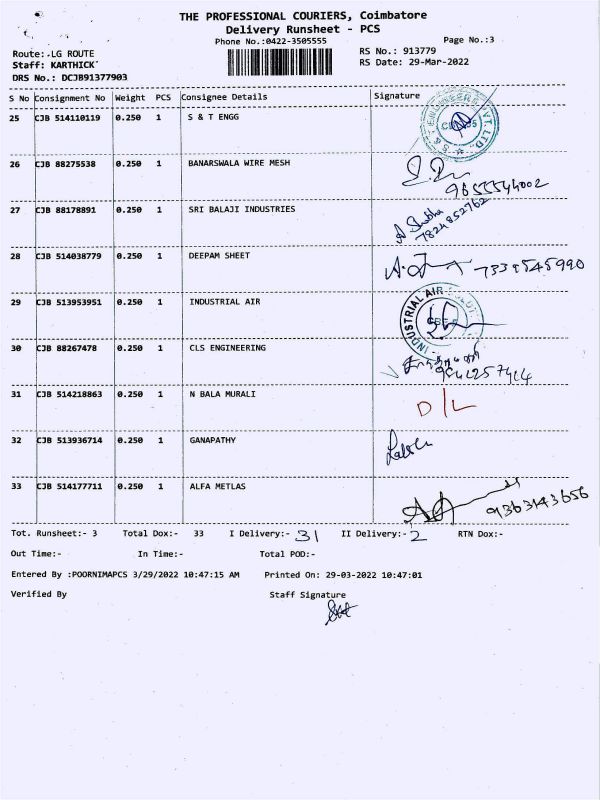 THE PROFESSIONAL COURIERS, Coimbatore
Delivery Runsheet - PCS
Phone No.:0422-3505555
Page No.:3
Route:.LG ROUTE
RS No.: 913779
Staff: KARTHICK
RS Date: 29-Mar-2022
DRS No.: DCJB91377903
S No Consignment No Weight PCS Consignee Details Signature
25 CJB 514110119 0.250 1 S & T ENGG
26 CJB 88275538 0.250 1 BANARSWALA WIRE MESH
9655544002
27 CJB 88178891 0.250 1 SRI BALAJI INDUSTRIES
7824852762
28 CJB 514038779 0.250 1 DEEPAM SHEET
7339545990
29 CJB 513953951 0.250 1 INDUSTRIAL AIR
INDUSTRIAL AIR
30 CJB 88267478 0.250 1 CLS ENGINEERING
31 CJB 514218863 0.250 1 N BALA MURALI D/L
32 CJB 513936714 0.250 1 GANAPATHY
33 CJB 514177711 0.250 1 ALFA METLAS
9363143656
Tot. Runsheet:- 3 Total Dox:- 33 I Delivery:- 31 II Delivery:- 2 RTN Dox:-
Out Time:- In Time:- Total POD:-
Entered By :POORNIMAPCS 3/29/2022 10:47:15 AM Printed On: 29-03-2022 10:47:01
Verified By Staff Signature